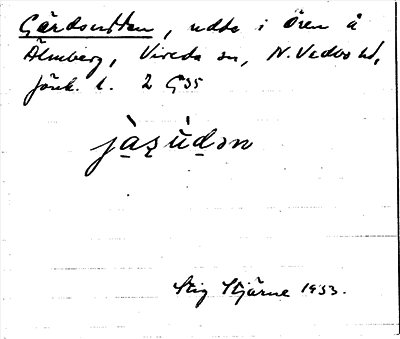 Gärdsudden, udde i Ören å
Älmberg, Vireda sn, N. Vedbo hd,
Jönk. l. 2 G35
jàʂùdən
Stig Stjärne 1933.